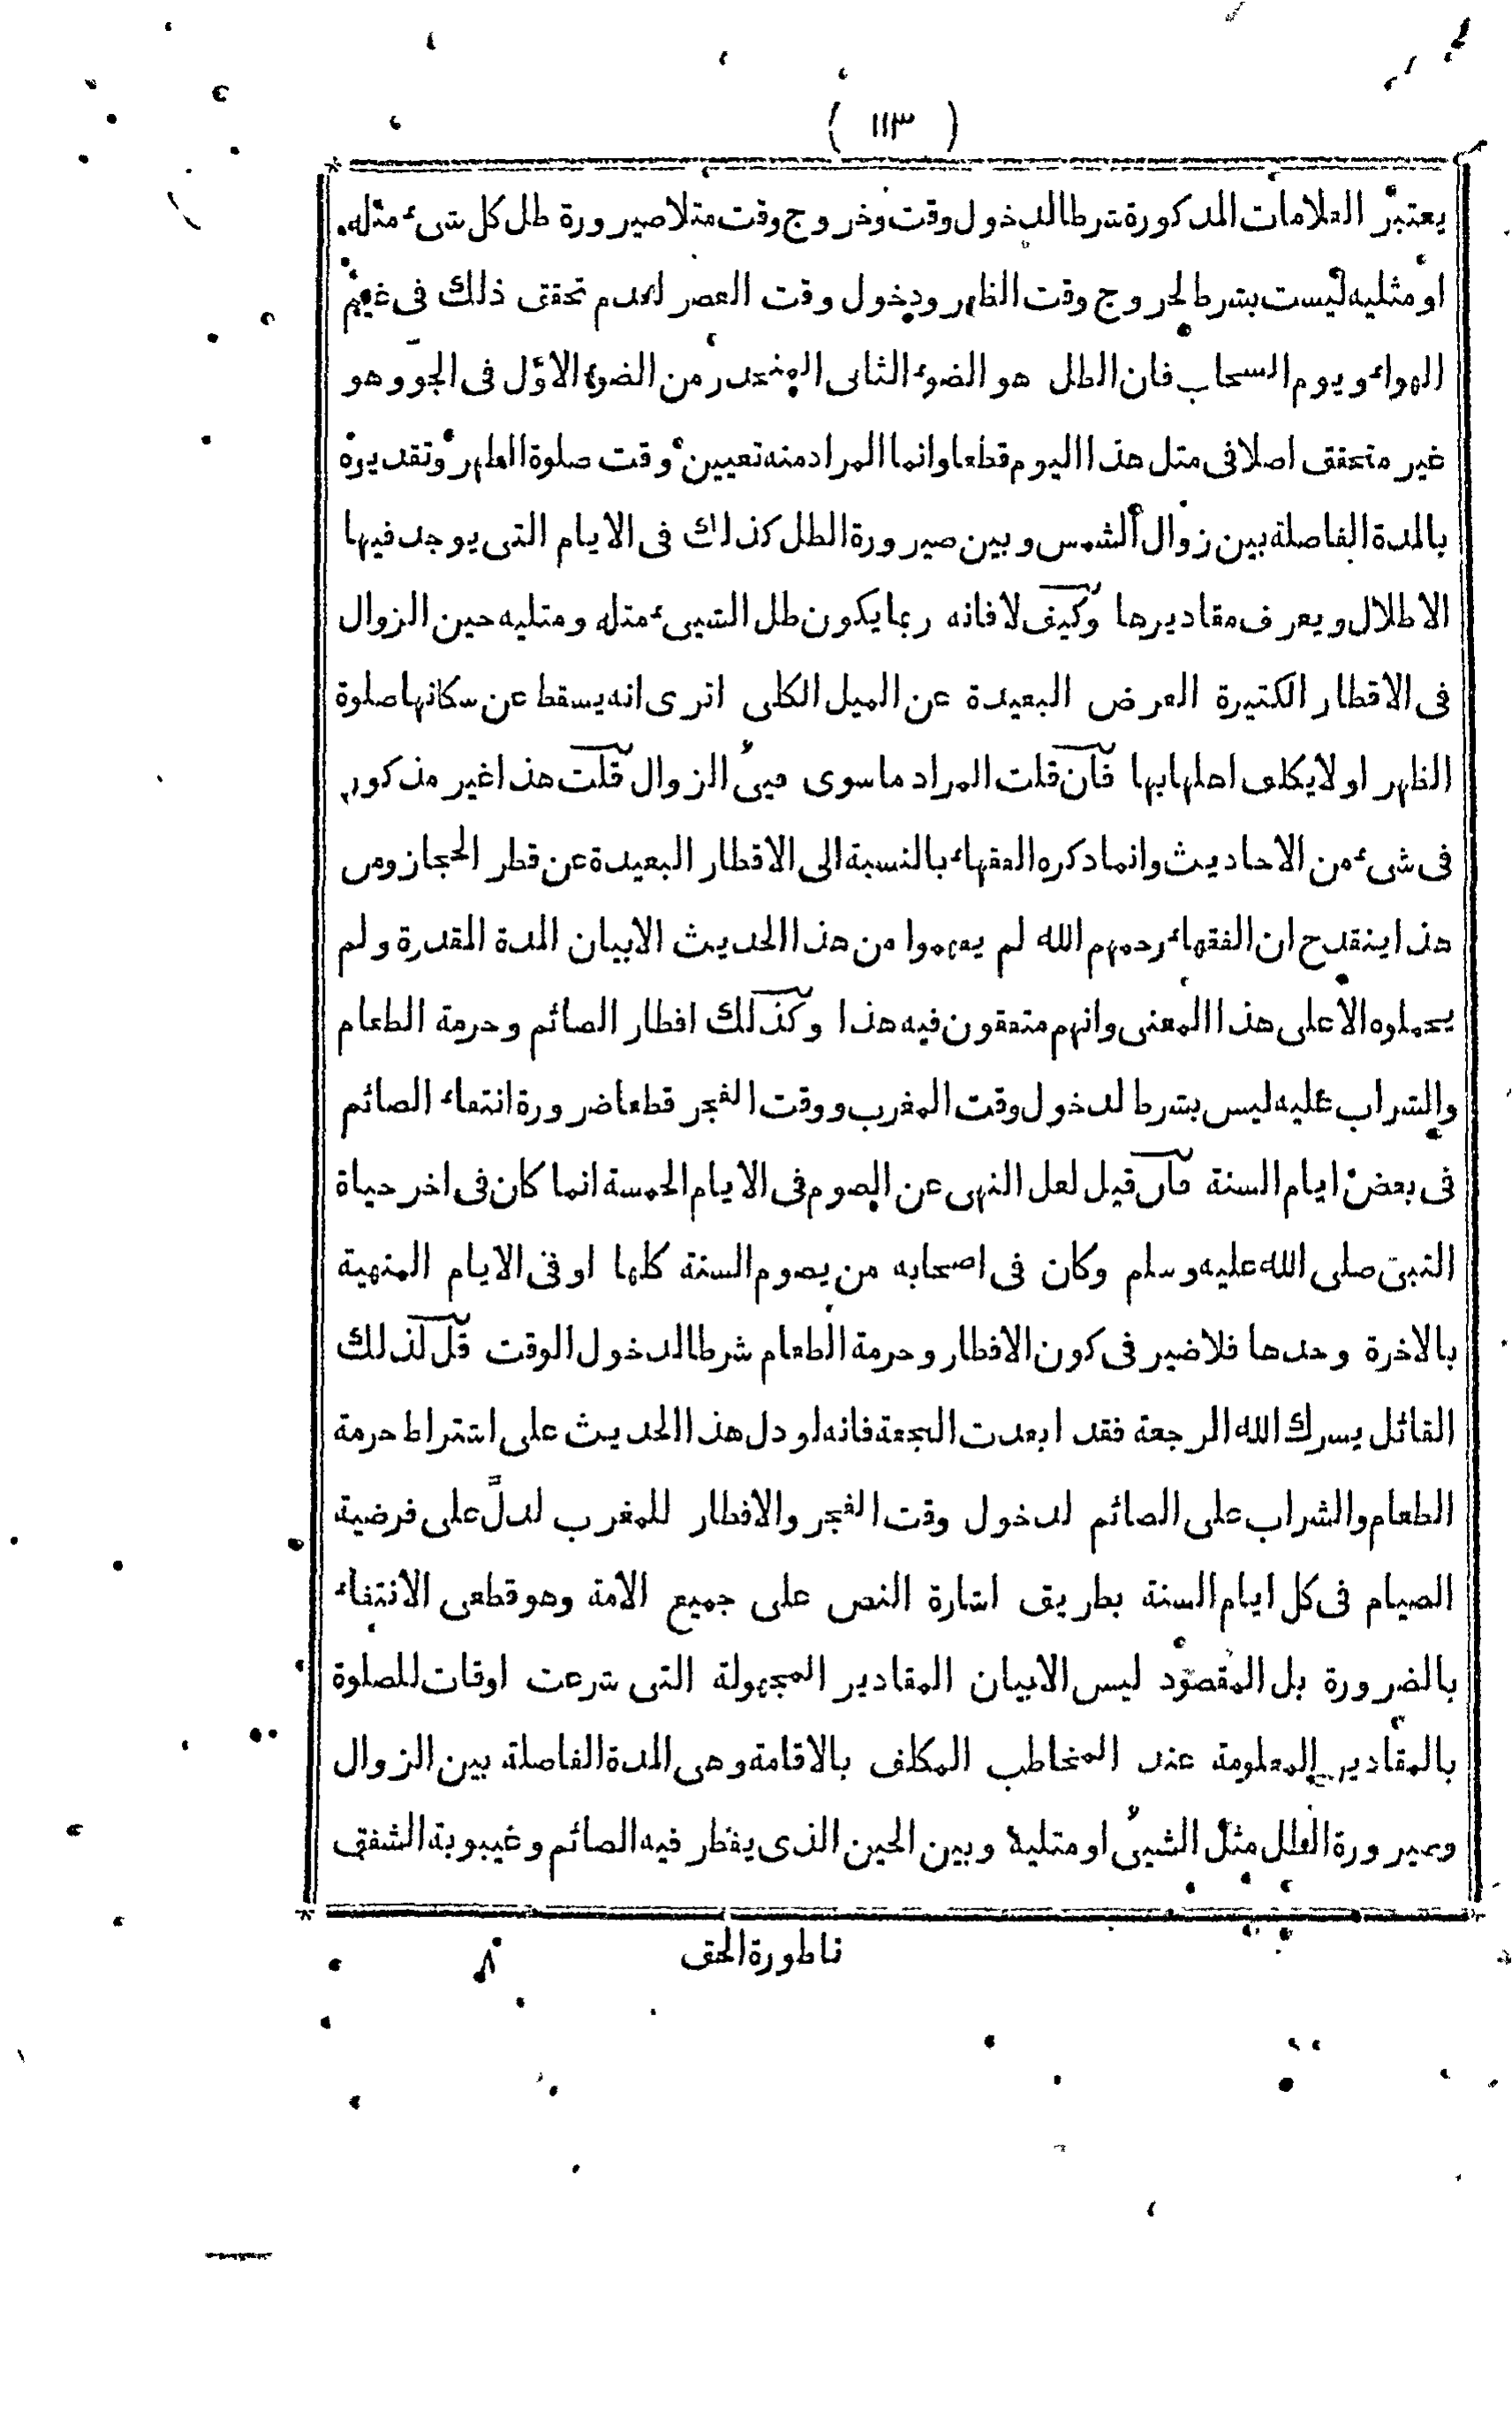 ( ١١٣ )
يعتبر العلامات المذكورة شرطا لدخول وقت وخروج وقت مثلا صيرورة ظل كل شىء مثله
او مثليه ليست بشرط لخروج وقت الظهر ودخول وقت العصر لعدم تحقق ذلك فى غيم
الهواء ويوم السحاب فان الظل هو الضوء الثانى المنحدر من الضوء الاول فى الجو وهو
غير متحقق اصلا فى مثل هذا اليوم قطعا وانما المراد منه تعيين وقت صلوة الظهر وتقديره
بالمدة الفاصلة بين زوال الشمس وبين صيرورة الظل كذلك فى الايام التى يوجد فيها
الاظلال ويعرف مقاديرها وكيف لا فانه ربما يكون ظل الشيىء مثله ومثليه حين الزوال
فى الاقطار الكثيرة العرض البعيدة عن الميل الكلى اترى انه يسقط عن سكانها صلوة
الظهر او لا يكلف اهلها بها فان قلت المراد ما سوى فيئ الزوال قلت هذا غير مذكور
فى شىء من الاحاديث وانما ذكره الفقهاء بالنسبة الى الاقطار البعيدة عن قطر الحجاز ومن
هذا ينقدح ان الفقهاء رحمهم الله لم يفهموا من هذا الحديث الا بيان المدة المقدرة ولم
يحملوه الا على هذا المعنى وانهم متفقون فيه هذا وكذلك افطار الصائم وحرمة الطعام
والشراب عليه ليس بشرط لدخول وقت المغرب ووقت الفجر قطعا ضرورة انتفاء الصائم
فى بعض ايام السنة فان قيل لعل النهى عن الصوم فى الايام الخمسة انما كان فى اخر حياة
النبى صلى الله عليه وسلم وكان فى اصحابه من يصوم السنة كلها او فى الايام المنهية
بالاخرة وحدها فلا ضير فى كون الافطار وحرمة الطعام شرطا لدخول الوقت قل لذلك
القائل يسرك الله الرجعة فقد ابعدت النجعة فانه لو دل هذا الحديث على اشتراط حرمة
الطعام والشراب على الصائم لدخول وقت الفجر والافطار للمغرب لدلّ على فرضية
الصيام فى كل ايام السنة بطريق اشارة النص على جميع الامة وهو قطعى الانتفاء
بالضرورة بل المقصود ليس الا بيان المقادير المجهولة التى شرعت اوقات للصلوة
بالمقادير المعلومة عند المخاطب المكلف بالاقامة وهى المدة الفاصلة بين الزوال
وصيرورة الظل مثل الشيئ او مثليه وبين الحين الذى يفطر فيه الصائم وغيبوبة الشفق
ناظورة الحق ٨